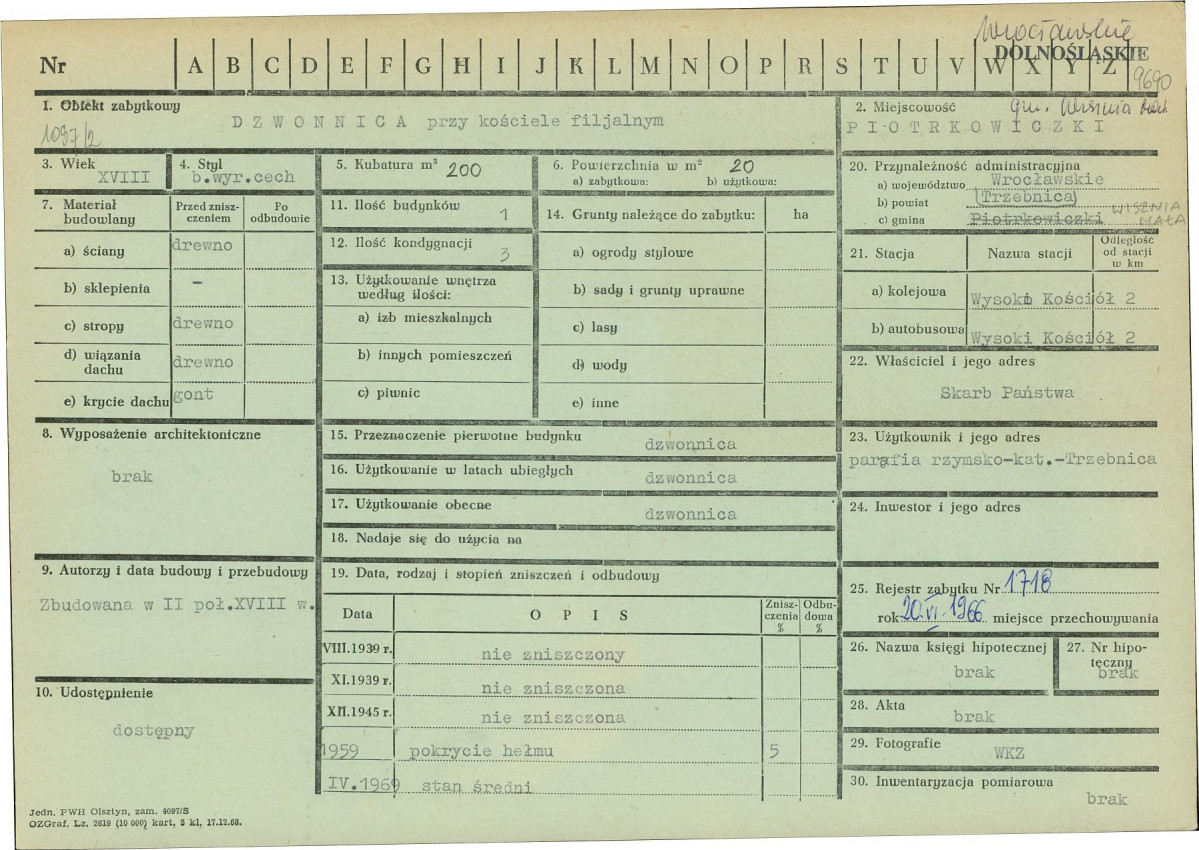 Wrocławskie
DOLNOŚLĄSKIE
Nr A B C D E F G H I J K L M N O P R S T U V W X Y Z
9690
1. Obiekt zabytkowy
1097/2
DZWONNICA przy kościele filjalnym
2. Miejscowość gm. Wisznia Mał.
PIOTRKOWICZKI
3. Wiek
XVIII
4. Styl
b.wyr.cech
5. Kubatura m³ 200
6. Powierzchnia w m² 20
a) zabytkowa: b) użytkowa:
20. Przynależność administracyjna
a) województwo Wrocławskie
b) powiat (Trzebnica)
c) gmina Piotrkowiczki WISZNIA MAŁA
7. Materiał budowlany
Przed zniszczeniem
Po odbudowie
a) ściany drewno
b) sklepienia -
c) stropy drewno
d) wiązania dachu drewno
e) krycie dachu gont
11. Ilość budynków 1
12. Ilość kondygnacji 3
13. Użytkowanie wnętrza według ilości:
a) izb mieszkalnych
b) innych pomieszczeń
c) piwnic
14. Grunty należące do zabytku: ha
a) ogrody stylowe
b) sady i grunty uprawne
c) lasy
d) wody
e) inne
21. Stacja Nazwa stacji Odległość od stacji w km
a) kolejowa Wysoki Kościół 2
b) autobusowa Wysoki Kościół 2
22. Właściciel i jego adres
Skarb Państwa
8. Wyposażenie architektoniczne
brak
15. Przeznaczenie pierwotne budynku dzwonnica
16. Użytkowanie w latach ubiegłych dzwonnica
17. Użytkowanie obecne dzwonnica
18. Nadaje się do użycia na
23. Użytkownik i jego adres
parafia rzymsko-kat.-Trzebnica
24. Inwestor i jego adres
9. Autorzy i data budowy i przebudowy
Zbudowana w II poł.XVIII w.
19. Data, rodzaj i stopień zniszczeń i odbudowy
Data OPIS Zniszczenia % Odbudowa %
VIII.1939 r. nie zniszczony
XI.1939 r. nie zniszczona
XII.1945 r. nie zniszczona
1959 pokrycie hełmu 5
IV.1969 stan średni
25. Rejestr zabytku Nr 1718
rok 20.VI.1966 miejsce przechowywania
26. Nazwa księgi hipotecznej
brak
27. Nr hipoteczny
brak
10. Udostępnienie
dostępny
28. Akta
brak
29. Fotografie
WKZ
30. Inwentaryzacja pomiarowa
brak
Jedn. PWH Olsztyn, zam. 4097/S
OZGraf. Lz. 2619 (10 000) kart. 5 kl. 17.12.68.